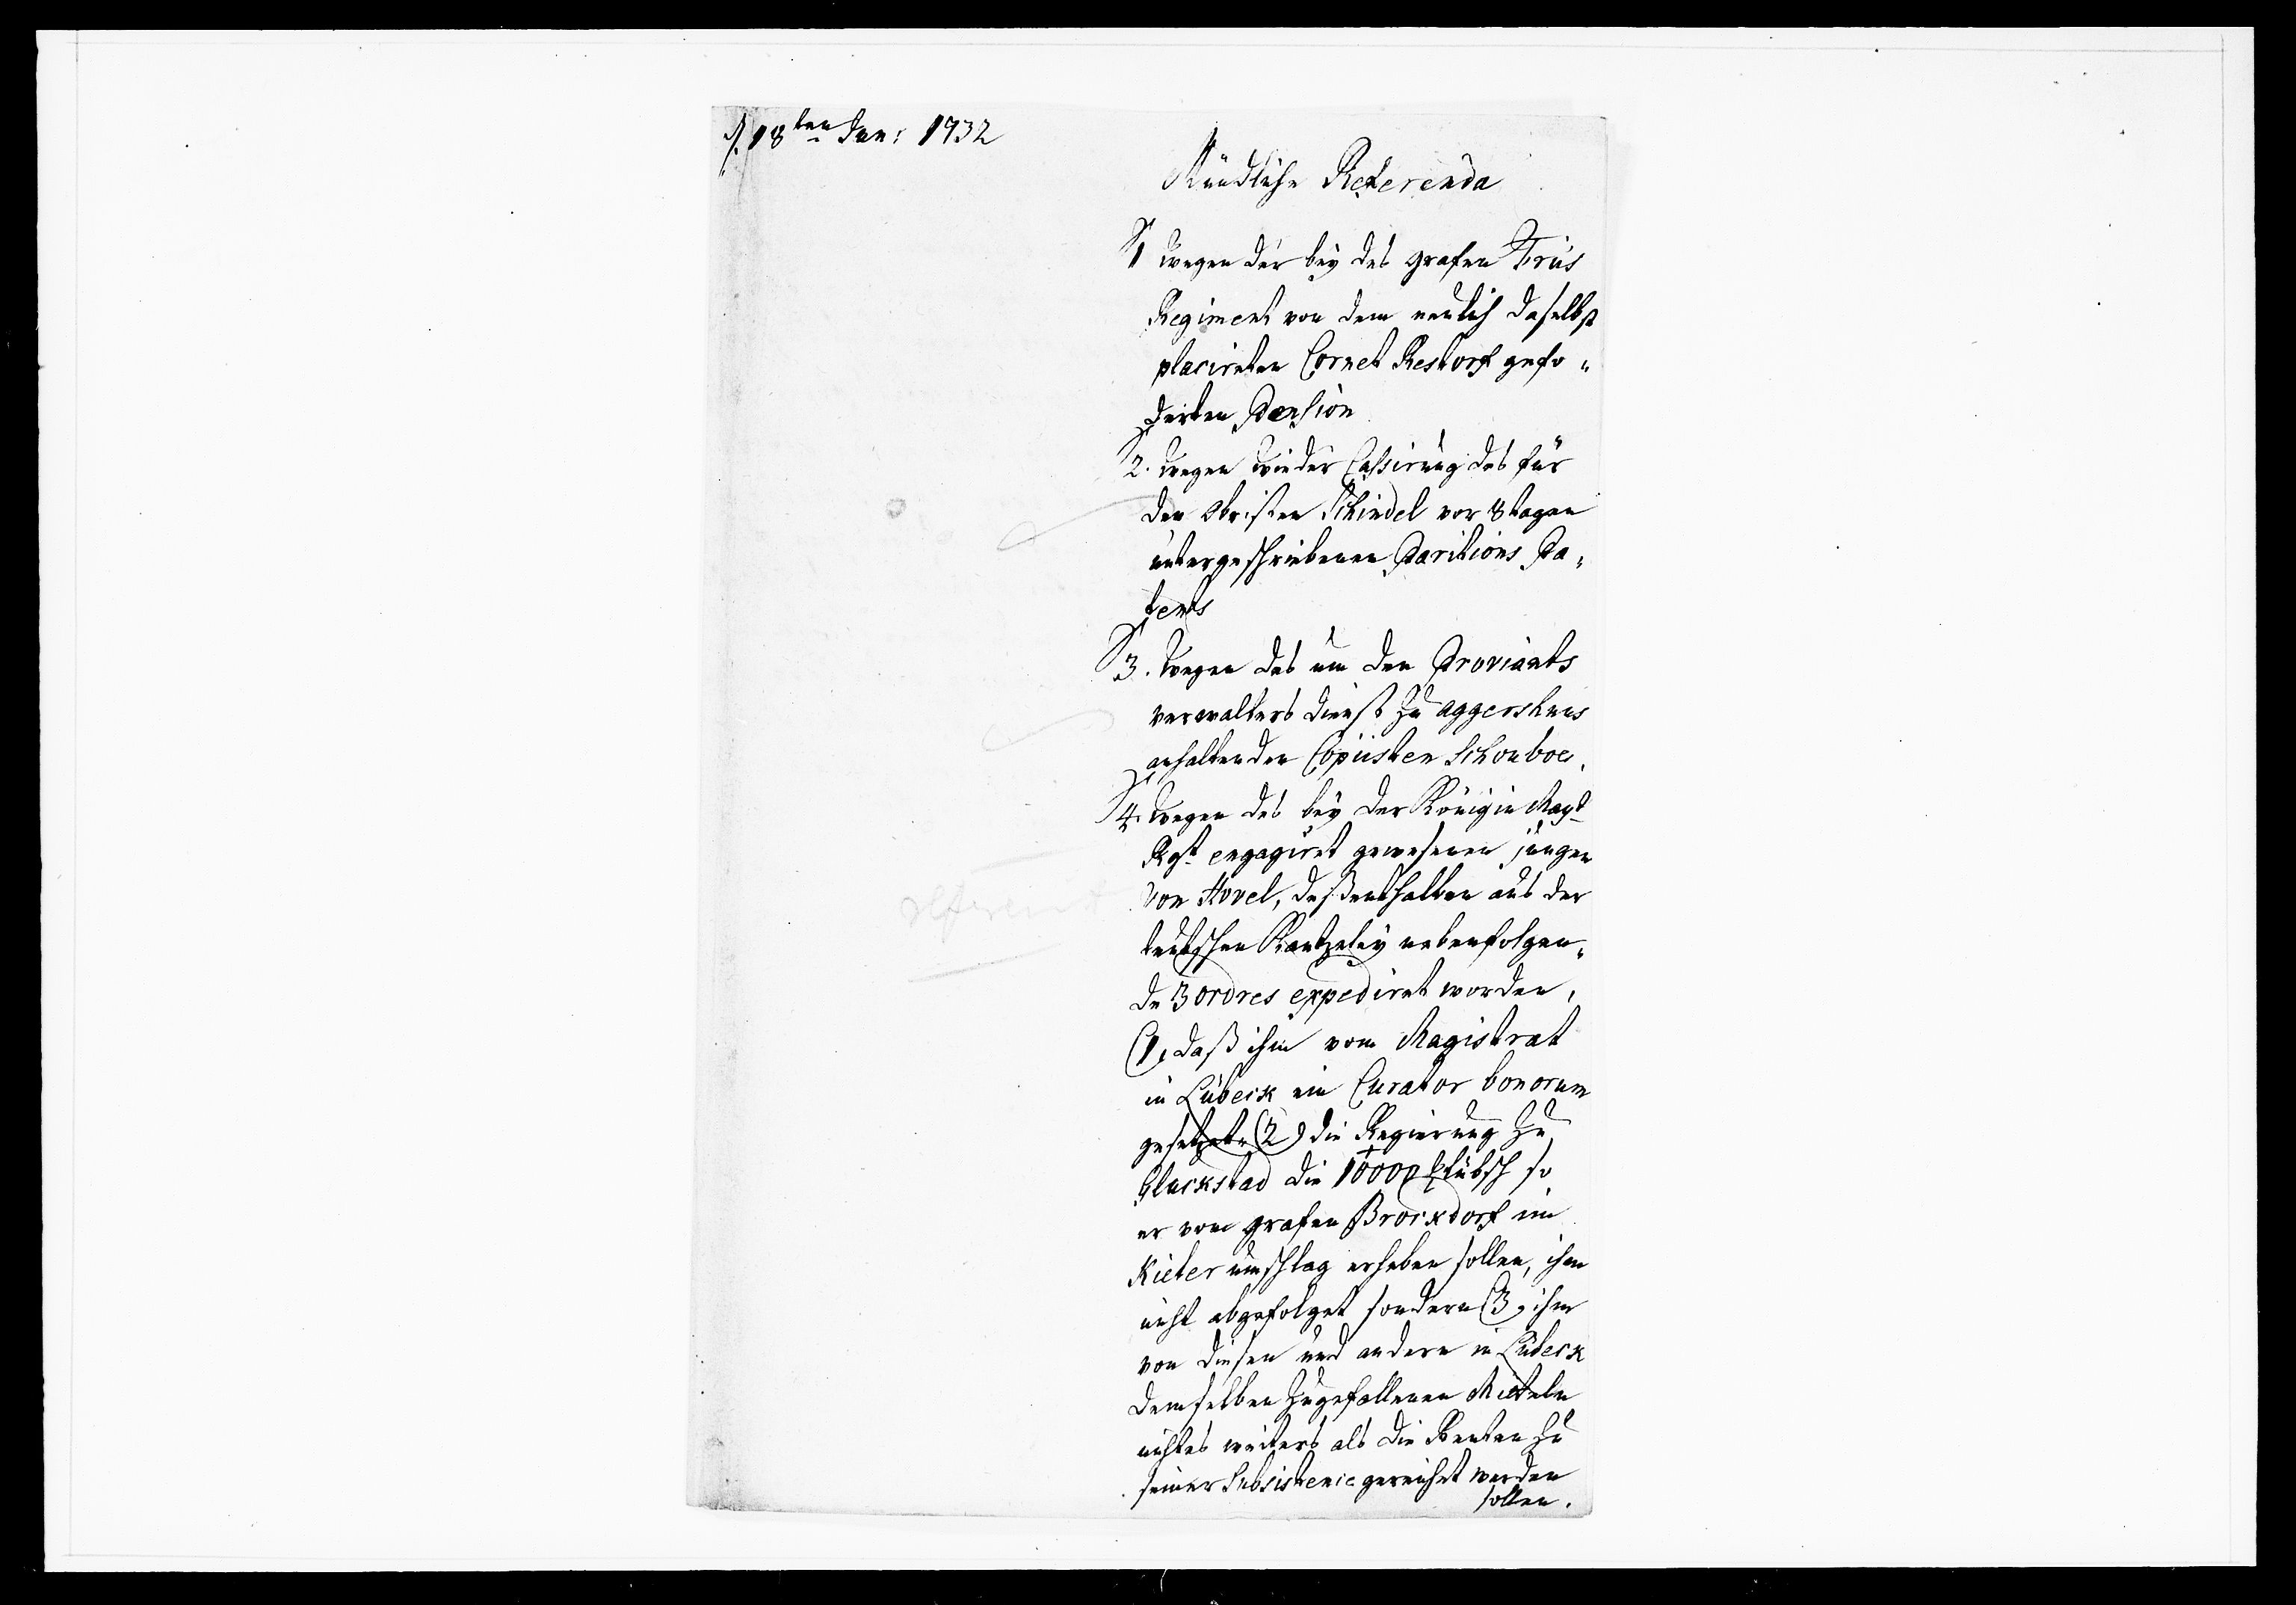 d. 18ten Jan: 1732
Mündliche Referenda
1 wegen der bey des grafen Friis
Regiment von dem neulich daselbst
placireten Cornet Restorf gefo¬
derten Pension
2. wegen wieder Cassirung des für
den Obristen Schindel vor 8 tagen
untergeschriebenen Paritions Pa¬
tents
3. wegen des um den Proviants
verwalters dienst zu Aggershuus
anhaltenden Copiisten Schouboe,
4. wegen des bey der Königin Mayt
Rgt engagiret gewesenen jungen
von Hovel, deßenthalben aus der
teutschen Cantzeley nebenfolgen¬
de 3 ordres expediret worden,
(1, daß ihm vom Magistrat
in Lübeck ein Curator bonorum
gesetzet (2) die Regierung zu
Gluckstad die 10000 lübsch so
er vom grafen Brockdorf im
Kieler umschlag erheben sollen, ihm
nicht abgefolget sondern (3, ihm
von diesen und andern in Lübeck
demselben zugefallenen Mitteln
nichtes weiters als die Renten zu
seiner Subsistence gereichet werden
sollen.
referirt